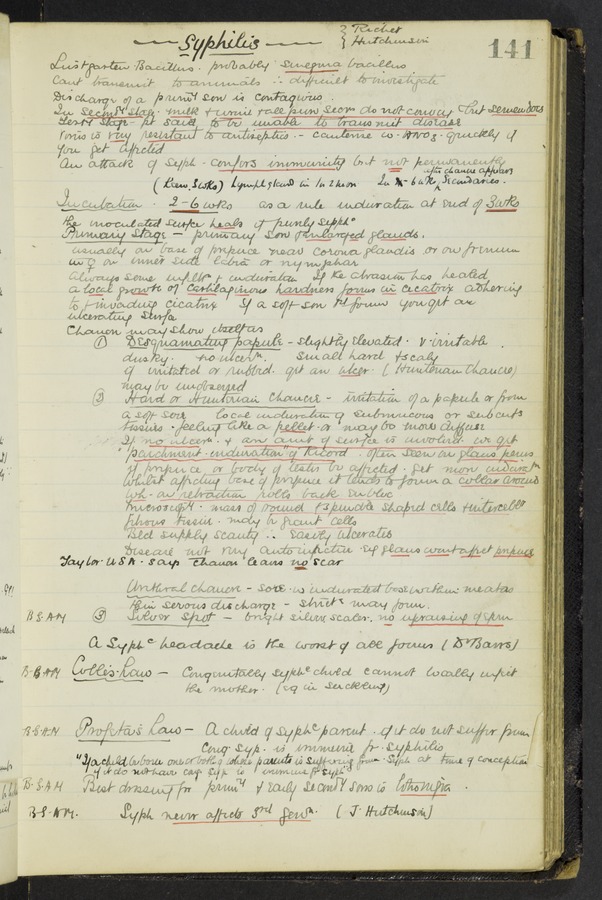 Syphilis
} Richet
} Hutchinson
141
Lustgarten Bacillus. probably smegma bacillus
Cant transmit to animals ∴ difficult to investigate
Discharge of a primy sore is contagious.
In Secondy stage milk & urine & all pure secrn do not convey but semen does
Tery stage - pt said to be unable to transmit disease
is very resistant to antiseptics - cauterise w. HNO3 quickly if
you get affected
An attack of Syph. confers immunity but not permanently
(Labm 3wks) lymph gland in 1 or 2 more In 6 wks, after chancre appears Secondaries.
Incubation. 2-6 wks as a rule induration at end of 3wks
the inoculated surface heals if purely syphc
Primary Stage - primary sore & enlarged glands.
usually on base of prepuce near corona glandis or on frenum
in ♀ on inner side labia or nymphae
Always some & induration If the abrasion has healed
a local growth of cartilaginous hardness forms in cicatrix adhering
to & invading cicatrix If a soft sore form you get an
ulcerating surface
Chancre may show itself as
① Desquamating papule - slightly elevated. & irritable
dusky. no ulcern. small hard & scaly
if irritated or rubbed. get an ulcer. (Hunterian Chancre)
may be unobserved
② Hard or Hunterian Chancre - irritation of a papule or from
a soft sore local induration of submucous or subcuts
tissues - feeling like a pellet or may be more diffuse
If no ulcern & an amt of surface is involved we get
"parchment induration" of Ricord. often seen on glans penis
if prepuce or body of be affected. get more induratn
whilst affecting base of prepuce it tends to form a collar around
wh. on retraction rolls back en bloc
Microscopy. mass of round & spindle shaped cells & intercellr
fibrous tissue. may be giant cells
Bld supply scanty ∴ easily ulcerates
Disease not very autoinfective Eg glans wont affect prepuce
Taylor USA. says chancre leaves no scar
Urethral chancre - sore w indurated base within meatus
thin serous discharge - stricte may form.
B.S.A.M ③ Silver Spot - bright silver scales. no upraising of epm
A Syphc headache is the worst of all forms (Dr Barrs)
B.S.A.M Colles Law - Congenitally syphc child cannot locally infect
the mother. (eg in suckling)
B.S.A.M Profeta's Law - A child of syphc parent. if it do not suffer from
cong. syp. is immune fr. syphilis
"If a child be born one or both of whose parents is suffering from Syph at time of conception
if it do not have cong syp is immune fr syph"
B.S.A.M Best dressing for primy & early secondy sores is Lotio nigra.
B.S.A.M. Syph never affects 3rd genn. (J. Hutchinson)